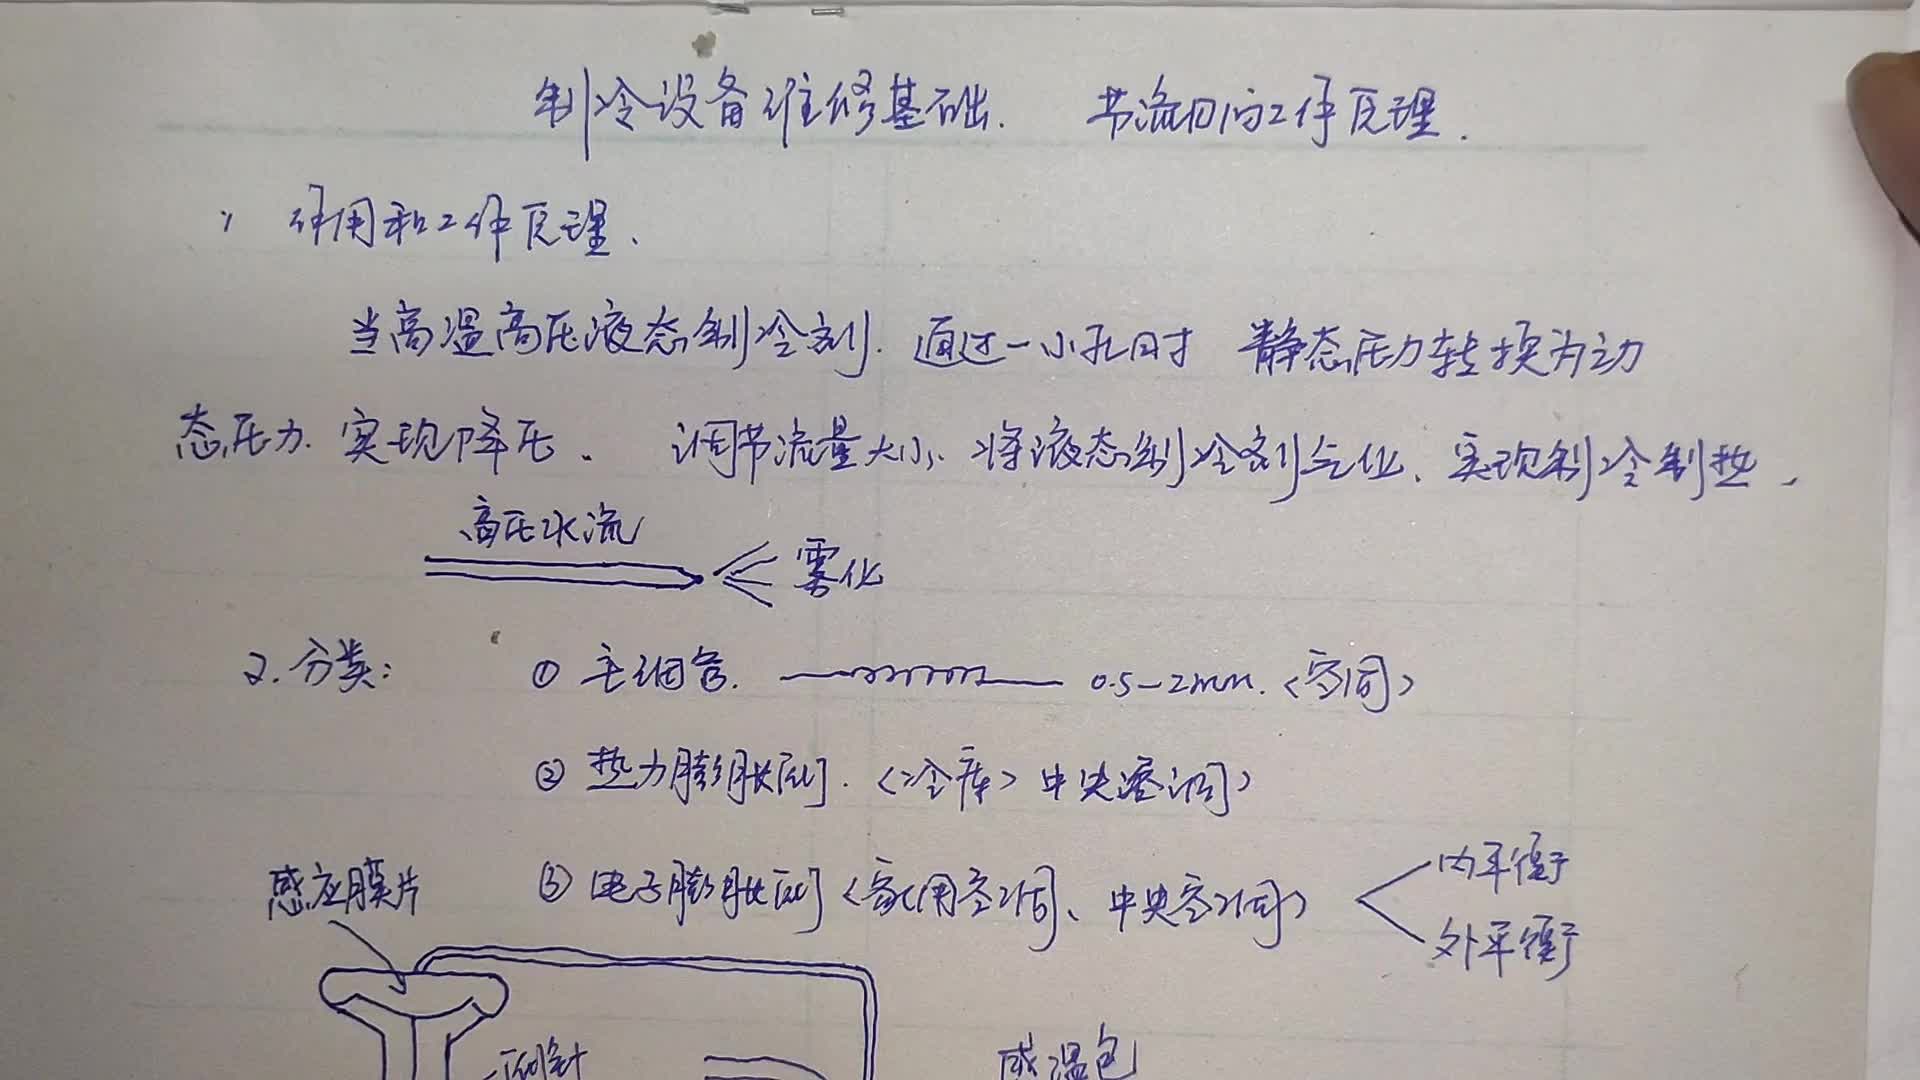 制冷设备维修基础. 节流阀工作原理.
1、作用和工作原理.
当高温高压液态制冷剂.通过一小孔时 静态压力转换为动
态压力.实现降压. 调节流量大小、将液态制冷剂气化、实现制冷制热.
高压水流
雾化
2.分类: ① 毛细管. 0.5—2mm.<空调>
② 热力膨胀阀.<冷库>中央空调>
感应膜片 ③ 电子膨胀阀<家用空调、中央空调>
内平衡
外平衡
阀针
感温包